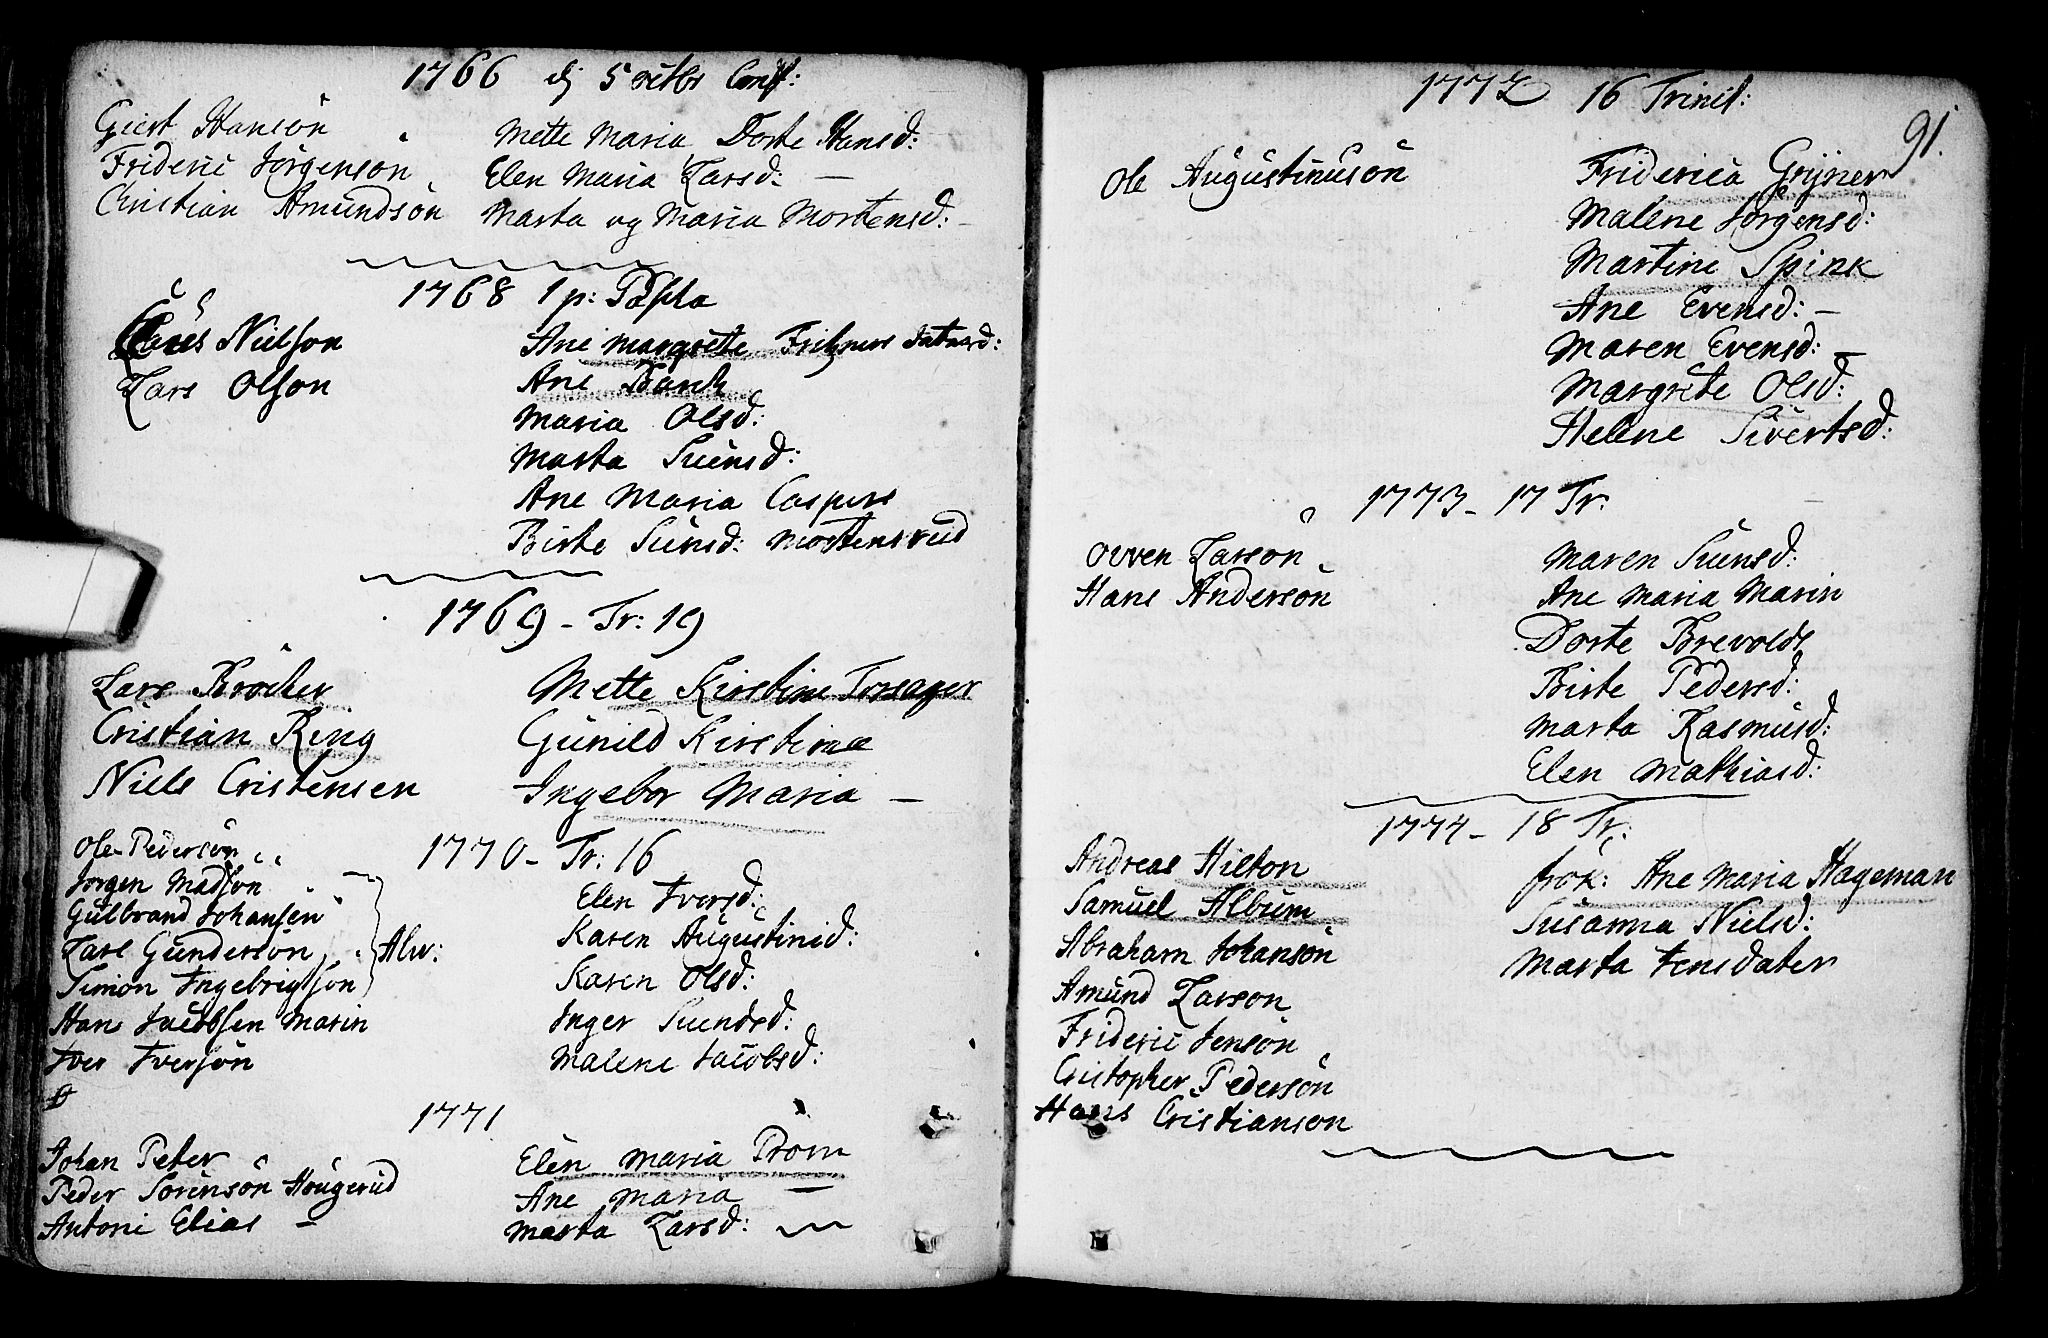 1766 dj 5 octbr Conf:
Giert Hansön
Frideric Jörgensön
Christian Amundsön
Mette Maria Dorte Hansd:
Elen Maria Larsd. —
Marta og Maria Mortensd: -
1768 1 p: Pascha
Nielson
Lars Olson
Ane Margrete
Ane Banck
Maria Olsd:
Marta Suensd:
Ane Maria Caspers
Birte Suensd: Mortensrud
1769 - Tr: 19
Lars Bröcker
Cristian Ring
Niels Cristensen
Mette Kirstine Torsager
Gunild Kirstine
Ingebor Maria —
1770 - Tr: 16
Ole Pedersön
Jörgen Madsön
Gulbrand Johansen
Lars Gundersön
Simon Ingebrigtson
Alw:
Hans Jacobsen Marin
Iver Iversön
Elen Iversd:
Karen Augustinid:
Karen Olsd:
Inger Suendsd:
Malene Jacobsd:
1771
Johan Peter
Peder Sörensön Höugerud
Antoni Elias —
Elen Maria Prom
Ane Maria —
Marta Larsd:
91.
1772 16 Trinit:
Ole Augustinusön
Friderica Grÿner
Malene Jörgensd:
Martine Spink
Ane Evensd: —
Maren Evensd: —
Margrete Olsd:
Helene Sivertsd:
1773 - 17 Tr.
Ovven Larson
Hans Andersön
Maren Suensd:
Ane Maria Marin
Dorte Brevolds
Birte Pedersd:
Marta Rasmusd:
Elen Mathiasd:
1774 - 18 Tr:
Andreas Hilton
Samuel Album
Abraham Johansön
Amund Larson
Frideric Jensön
Cristopher Pedersön
Hans Cristianson
frök: Ane Maria Hageman
Susanna Nielsd:
Marta Jensdater